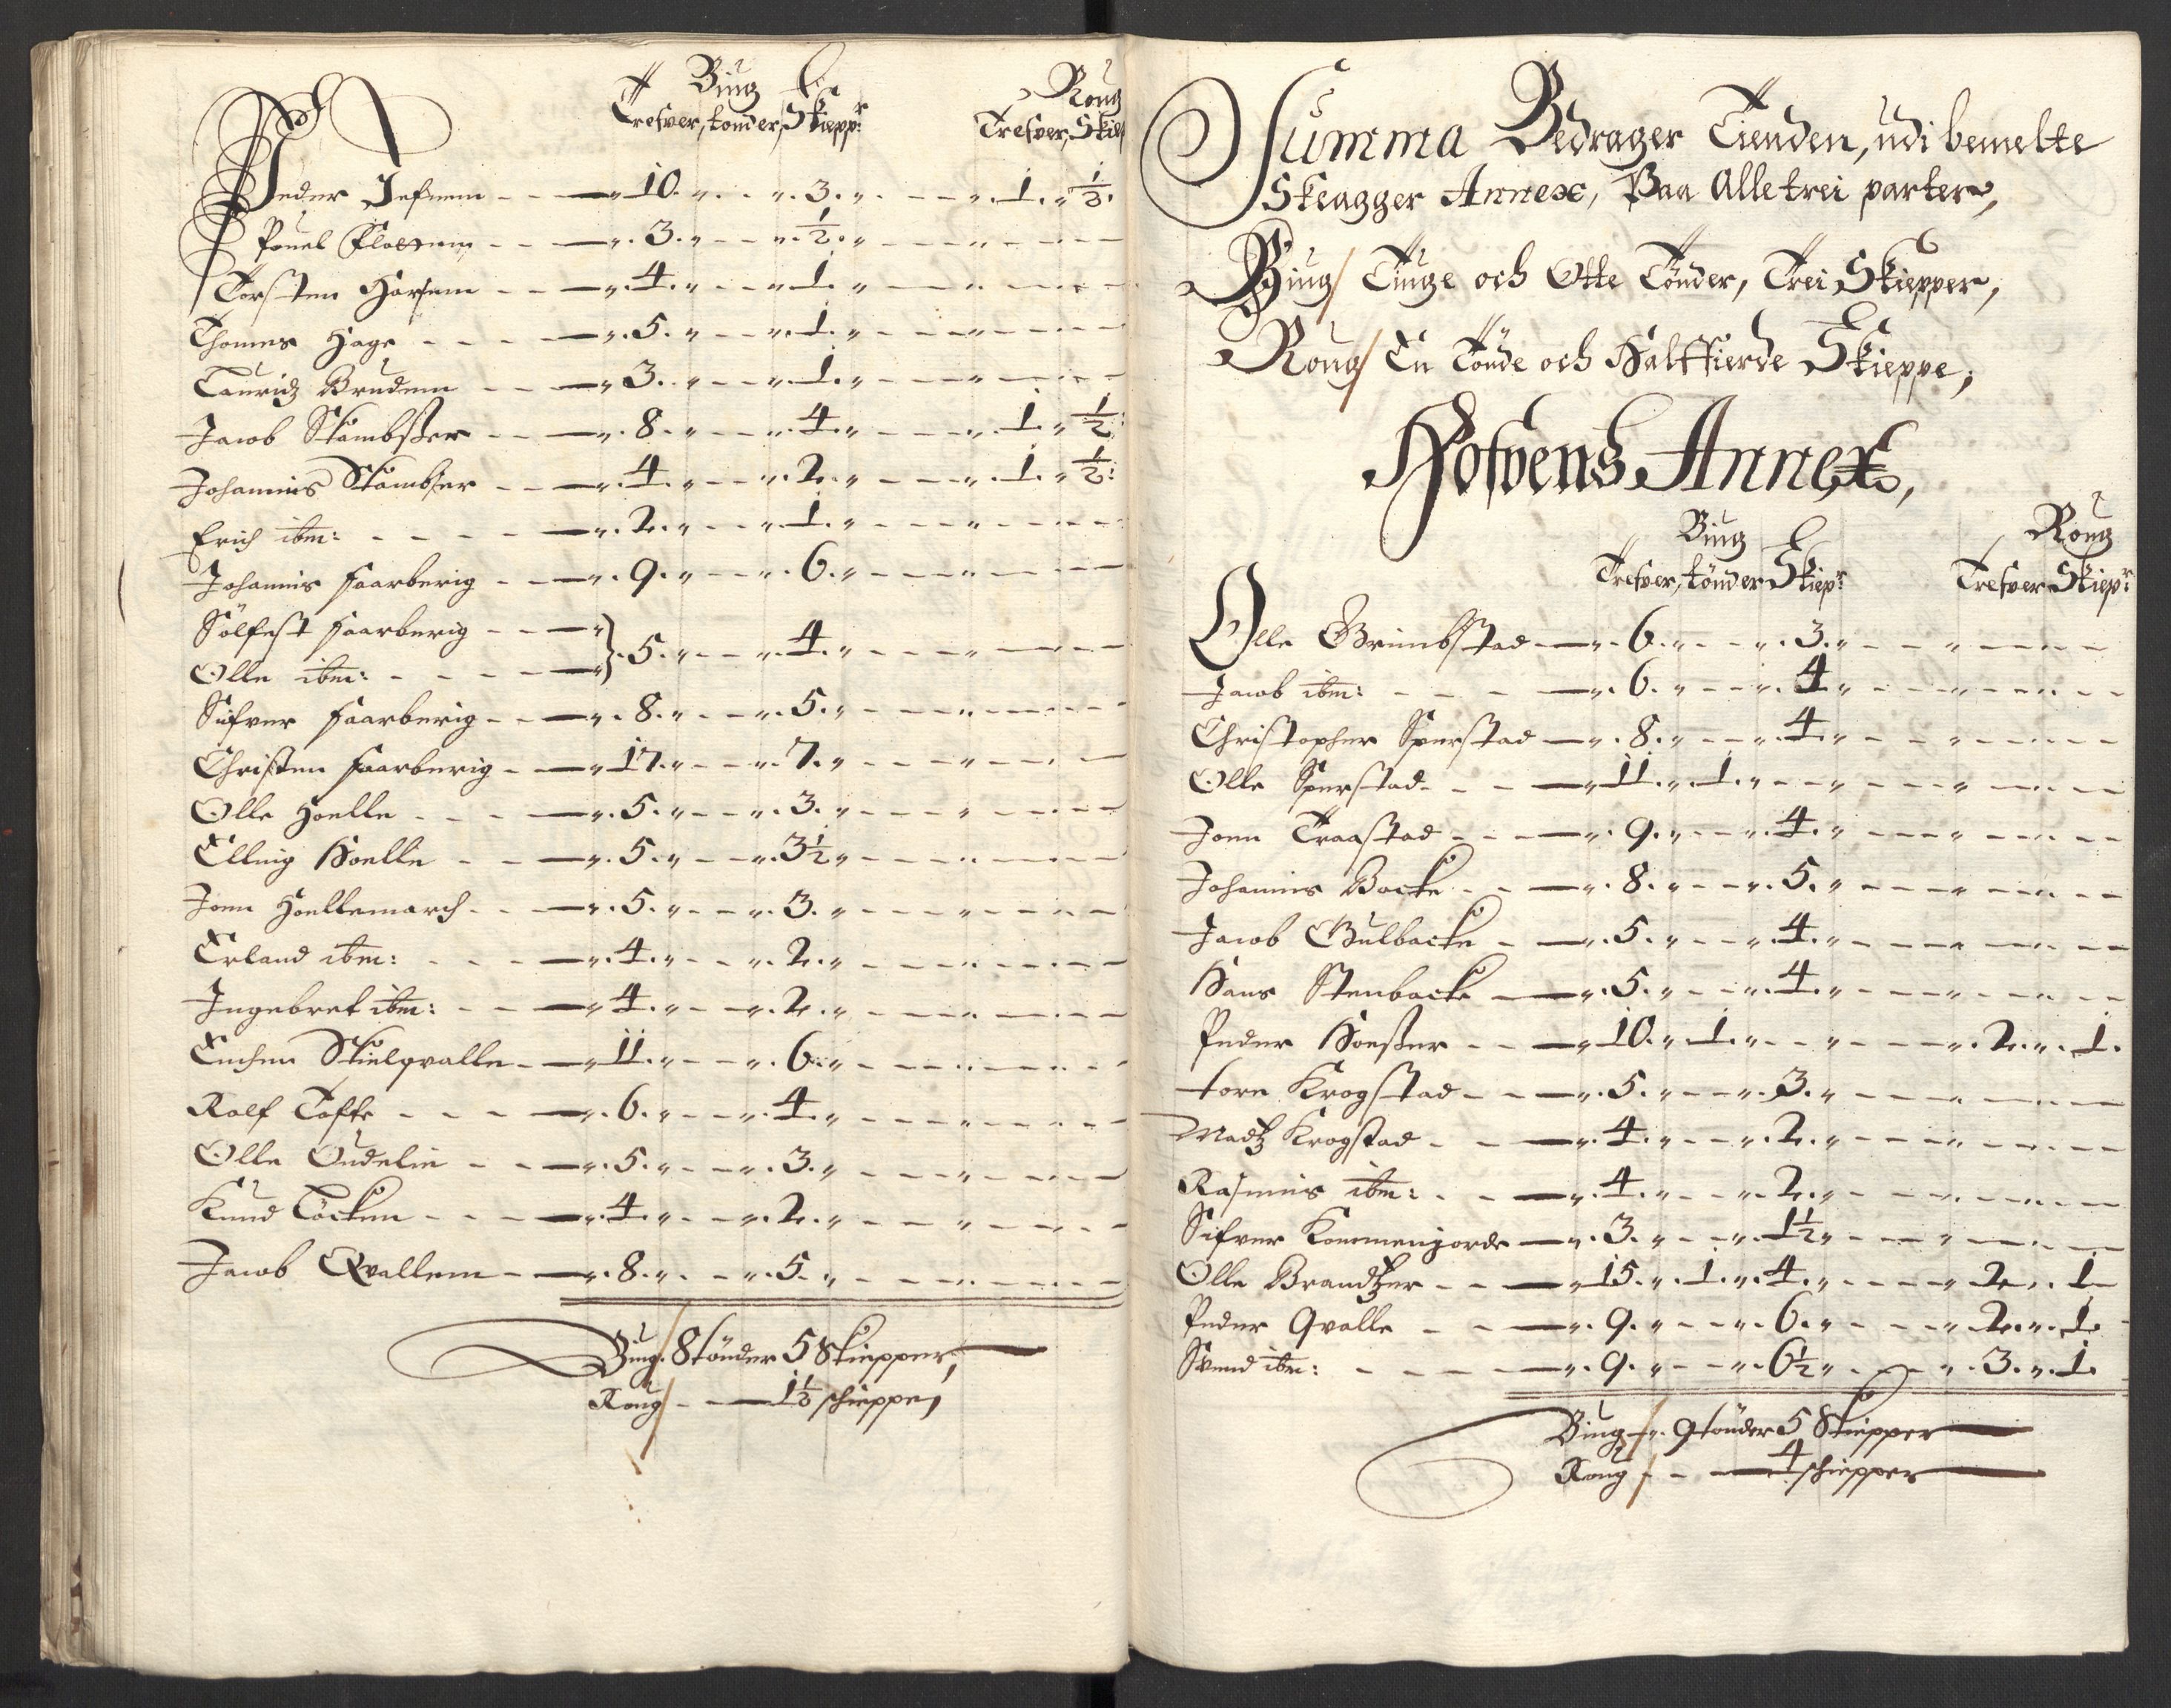 Biug Roug
Trefver, tonder, Skiepp:r Trefver, Skie
Peder Jefnem - - — „ 10. „ - - „ 3. „ - - - „ 1. „ 1/2.
Pouel - - — „ 3. „ - - „ 1/2. „ - - - „ - - -
Torsten Harsem - - — „ 4. „ - - „ 1. „ - - - „ - - -
Thomes Hage - - - — „ 5. „ - - „ 1. „ - - - „ - - -
Lauridz Brudem - - — „ 3. „ - - „ 1. „ - - - „ - - -
Jacob Stambsser - - — „ 8. „ - - „ 4. „ - - - „ 1. „ 1/2:
Johannis Stambser - - — „ 4. „ - - „ 2. „ - - - „ 1. „ 1/2:
Erich ibm: - - - - — „ 2. „ - - „ 1. „ - - - „ - - -
Johannis Faarberig - - — „ 9. „ - - „ 6. „ - - - „ - - -
Sölfest Faarberig - - — „ } 5. „ - - „ 4. „ - - - „ - - -
Olle ibm: - - - - — „
Sifver Faarberig - - — „ 8. „ - - „ 5. „ - - - „ - - -
Christen Faarberig - - — „ 17. „ - - „ 7. „ - - - „ - - -
Olle Hoelle - - - — „ 5. „ - - „ 3. „ - - - „ - - -
Elling Hoelle - - — „ 5. „ - - „ 3 1/2 „ - - - „ - - -
Jonn Hoellemarch - - — „ 5. „ - - „ 3. „ - - - „ - - -
Erland ibm: - - - — „ 4. „ - - „ 2. „ - - - „ - - -
Ingebret ibm: - - — „ 4. „ - - „ 2. „ - - - „ - - -
Enchen Skielqvalle - — „ 11. „ - - „ 6. „ - - - „ - - -
Rolf Tofte - - - — „ 6. „ - - „ 4. „ - - - „ - - -
Olle Oudelin - - — „ 5. „ - - „ 3. „ - - - „ - - -
Knud Löcken - - - — „ 4. „ - - „ 2. „ - - - „ - - -
Jacob Qvallem - — „ 8. „ - - „ 5. „ - - - „ - - -
Biug / 8 tönder 5 Skiepper,
Roug / - - — 1 1/2 schieppe,
Summa Bedrager Tienden, udi bemelte
Skeagger Annex, Paa Alle trei parter,
Biug / Tiuge och Otte Tönder, Trei Skiepper,
Roug / En Tönde och Halffierde Skieppe,
Hofvens Annex,
Biug Roug
Trefver, tönder Skiep:r Trefver Skiep:r
Olle Grimbstad — „ 6. „ - - „ 3. „ - - „ - - -
Jacob ibm: - - - — „ 6. „ - - „ 4. „ - - „ - - -
Christopher Sperstad — „ 8. „ - - „ 4. „ - - „ - - -
Olle Sperstad - - — „ 11. „ 1. „ - - „ - - „ - - -
Jonn Traastad - - — „ 9. „ - - „ 4. „ - - „ - - -
Johannis Backe - - — „ 8. „ - - „ 5. „ - - „ - - -
Jacob Gulbacke - — „ 5. „ - - „ 4. „ - - „ - - -
Hans Stenbacke — „ 5. „ - - „ 4. „ - - „ - - -
Peder Hoesser - - — „ 10. „ 1. „ - - „ - - „ 2. „ 1.
tore Krogstad - - — „ 5. „ - - „ 3. „ - - „ - - -
Madtz Krogstad - - — „ 4. „ - - „ 2. „ - - „ - - -
Rasmus ibm: - - — „ 4. „ - - „ 2. „ - - „ - - -
Sifver Kommengorde — „ 3. „ - - „ 1 1/2 „ - - „ - - -
Olle Brandtzer - - — „ 15. „ 1. „ 4. „ - - „ 2. „ 1
Peder Qvalle - - — „ 9. „ - - „ 6. „ - - „ 2. „ 1.
Svend ibm: - - - — „ 9. „ - - „ 6 1/2 „ - - „ 3. „ 1.
Biug / „ 9 tönder 5 Skiepper
Roug / - - — 4 schiepper